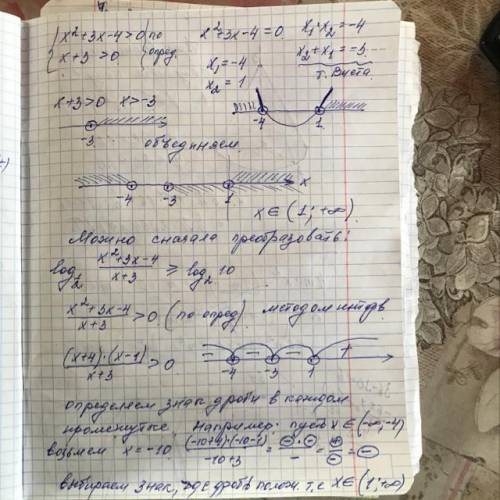 { x²+3x-4>0 } по   x²+3x-4=0   x₁·x₂=-4
{ x+3>0 } опред.   x₁=-4   x₂+x₁=-3
x₂=1   т. Виета.
x+3>0   x>-3
-3   -4   1
объединяем
-4   -3   1   x
x∈(1;+∞)
Можно сначала преобразовать:
log₂ (x²+3x-4)/(x+3) ≥ log₂ 10
(x²+3x-4)/(x+3) >0 (по опред). методом интерв
((x+4)·(x-1))/(x+3) >0   -   -   -   +
-4   -3   1
определяем знак дроби в каждом
промежутке. Например: пусть x∈(-∞;-4)
возьмем x=-10   ((-10+4)·(-10-1))/(-10+3) = (-·-)/- = +/- = -
выбираем знак, где дробь полож. т.е x∈(1;+∞)